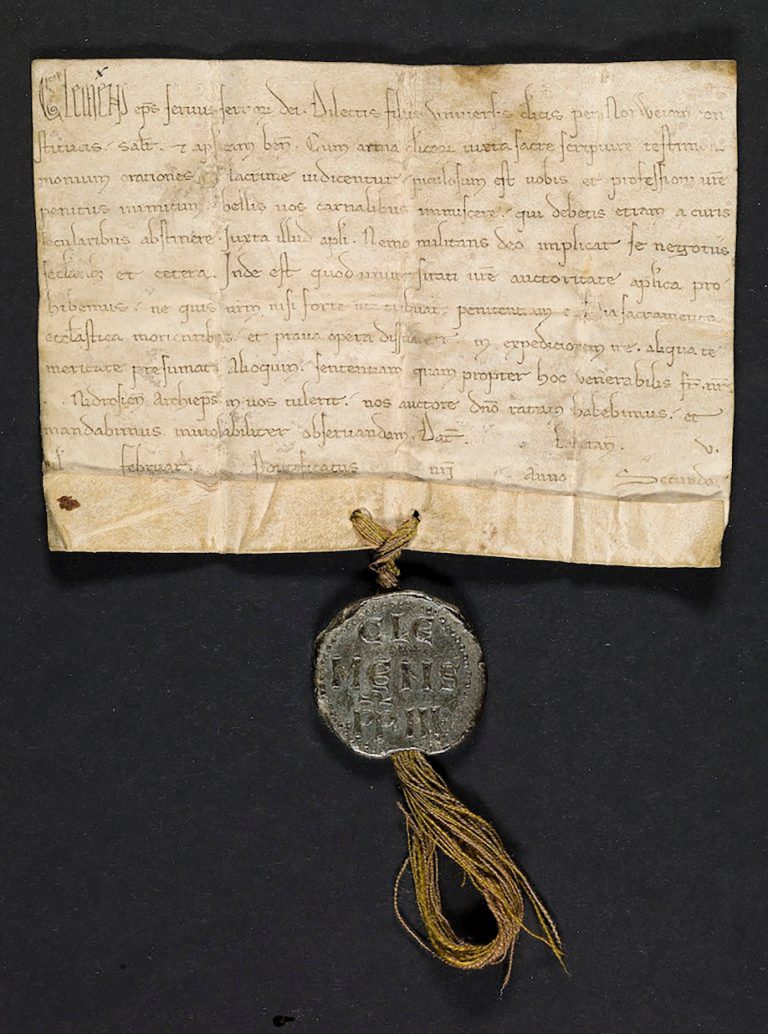 Clemens eps seruus seruor dei. Dilectis filiis uniuersis clicis per Norweiam con
stitutis. salt. et aplicam ben. Cum arma clicor iuxta sacre scripture testimoni
monium orationes lacrime iudicentur. piculosum est uobis et professioni ure
penitus inimicum bellis uos carnalibus inmiscere. qui debetis etiam a curis
secularibus abstinere. Iuxta illud apli. Nemo militans deo implicat se negotiis
et cetera. Inde est quod uniuersitati ure auctoritate aplica pro
hibemus. ne quis urm nisi forte ut tribuat penitentiam sacramenta
ecclastica morientibus. et praua opera in expeditionem ire. aliqua te
meritate presumat. Alioquin. sententiam quam propter hoc uenerabilis fr. nr.
Nidrosien Archieps in uos tulerit. nos auctore dno ratam habebimus. et
mandabimus inuiolabiliter obseruandam. Dat. Lateran. V.
kl februar. Pontificatus nri Anno Secundo
CLE
MENS
PP III